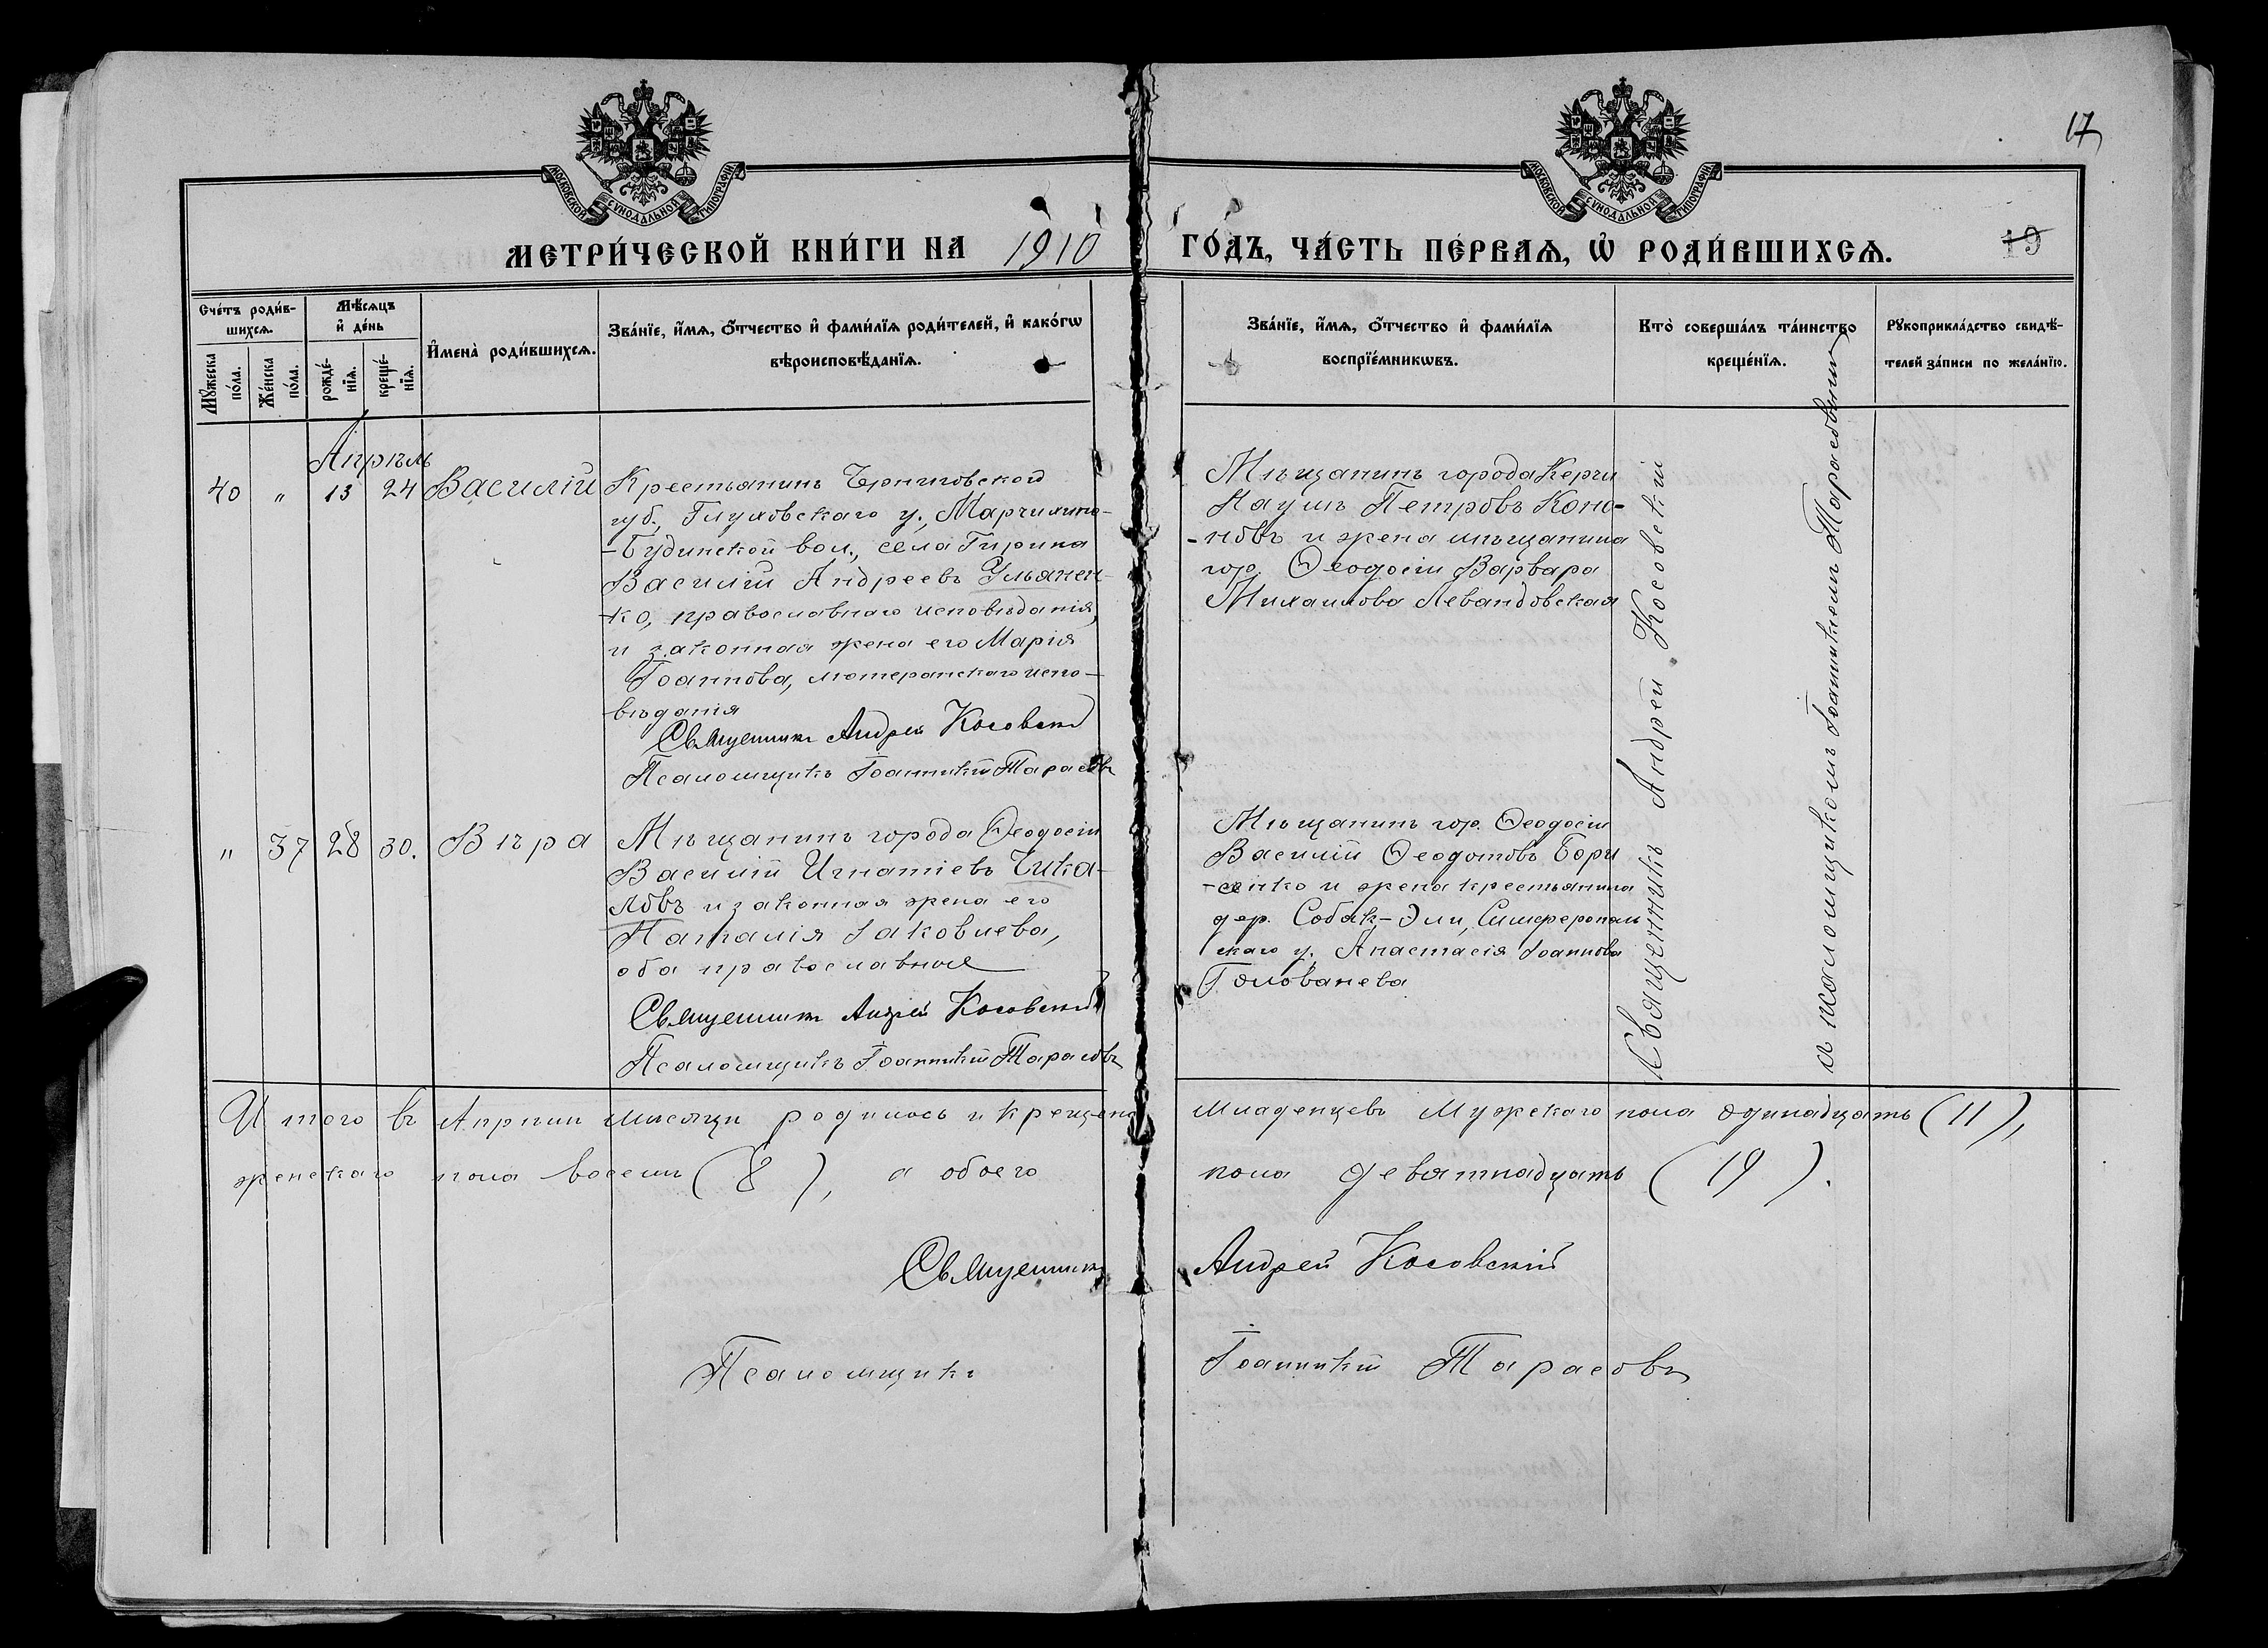 17
МОСКОВСКОЙ СѴНОДАЛЬНОЙ ТИПОГРАФІИ.
МОСКОВСКОЙ СѴНОДАЛЬНОЙ ТИПОГРАФІИ.
МЕТРИ́ЧЕСКОЙ КНИ́ГИ НА 1910 ГО́ДЪ, ЧА́СТЬ ПЕ́РВАѦ, Ѡ҆ РОДИ́ВШИХСѦ.
19
Сче́тъ роди́в-
шихсѧ.
Мꙋ́жеска
по́ла.
Же́нска
по́ла.
Мѣ́сѧцъ
и҆ де́нь
рожде́-
нїѧ.
креще́-
нїѧ.
И҆мена̀ роди́вшихсѧ.
Зва́нїе, и҆́мѧ, ѻ҆́тчество и҆ фами́лїѧ роди́телей, и҆ како́гѡ
вѣроисповѣ́данїѧ.
Зва́нїе, и҆́мѧ, ѻ҆́тчество и҆ фами́лїѧ
воспрїе́мникѡвъ.
Кто̀ соверша́лъ та́инство
креще́нїѧ.
Рꙋкоприкла́дство свидѣ́-
телей за́писи по жела́нїю.
Апрѣль
40 " 13 24 Василій
Крестьянинъ Черниговской
губ., Глуховскаго у., Марчихино-
-Будинской вол., села Гирина
Василій Андреевъ Ульянен-
ко, православнаго исповѣданія,
и законная жена его Марія
Іоаннова, лютеранскаго испо-
вѣданія
Священникъ Андрей Косовскій
Псаломщикъ Іоанникій Тарасовъ
Мѣщанинъ города Керчи
Наумъ Петровъ Коно-
-новъ и жена мѣщанина
гор. Ѳеодосіи Варвара
Михаилова Левандовская
Священникъ Андрей Косовскій
съ псаломщикомъ Іоанникіемъ Тарасовымъ
" 37 28 30. Вѣра
Мѣщанинъ города Ѳеодосіи
Василій Игнатіевъ Чика-
ловъ и законная жена его
Наталія Іаковлева,
оба православные
Священникъ Андрей Косовскій
Псаломщикъ Іоанникій Тарасовъ
Мѣщанинъ гор. Ѳеодосіи
Василій Ѳеодотовъ Бори
-сенко и жена крестьянина
дер. Собак-Эли, Симферополь
скаго у. Анастасія Іоаннова
Голованева
Итого въ Апрѣлѣ мѣсяцѣ родилось и крещено младенцевъ мужскаго пола одинадцать (11),
женскаго пола восемь (8), а обоего пола девятнадцать (19).
Священникъ Андрей Косовскій
Псаломщикъ Іоанникій Тарасовъ